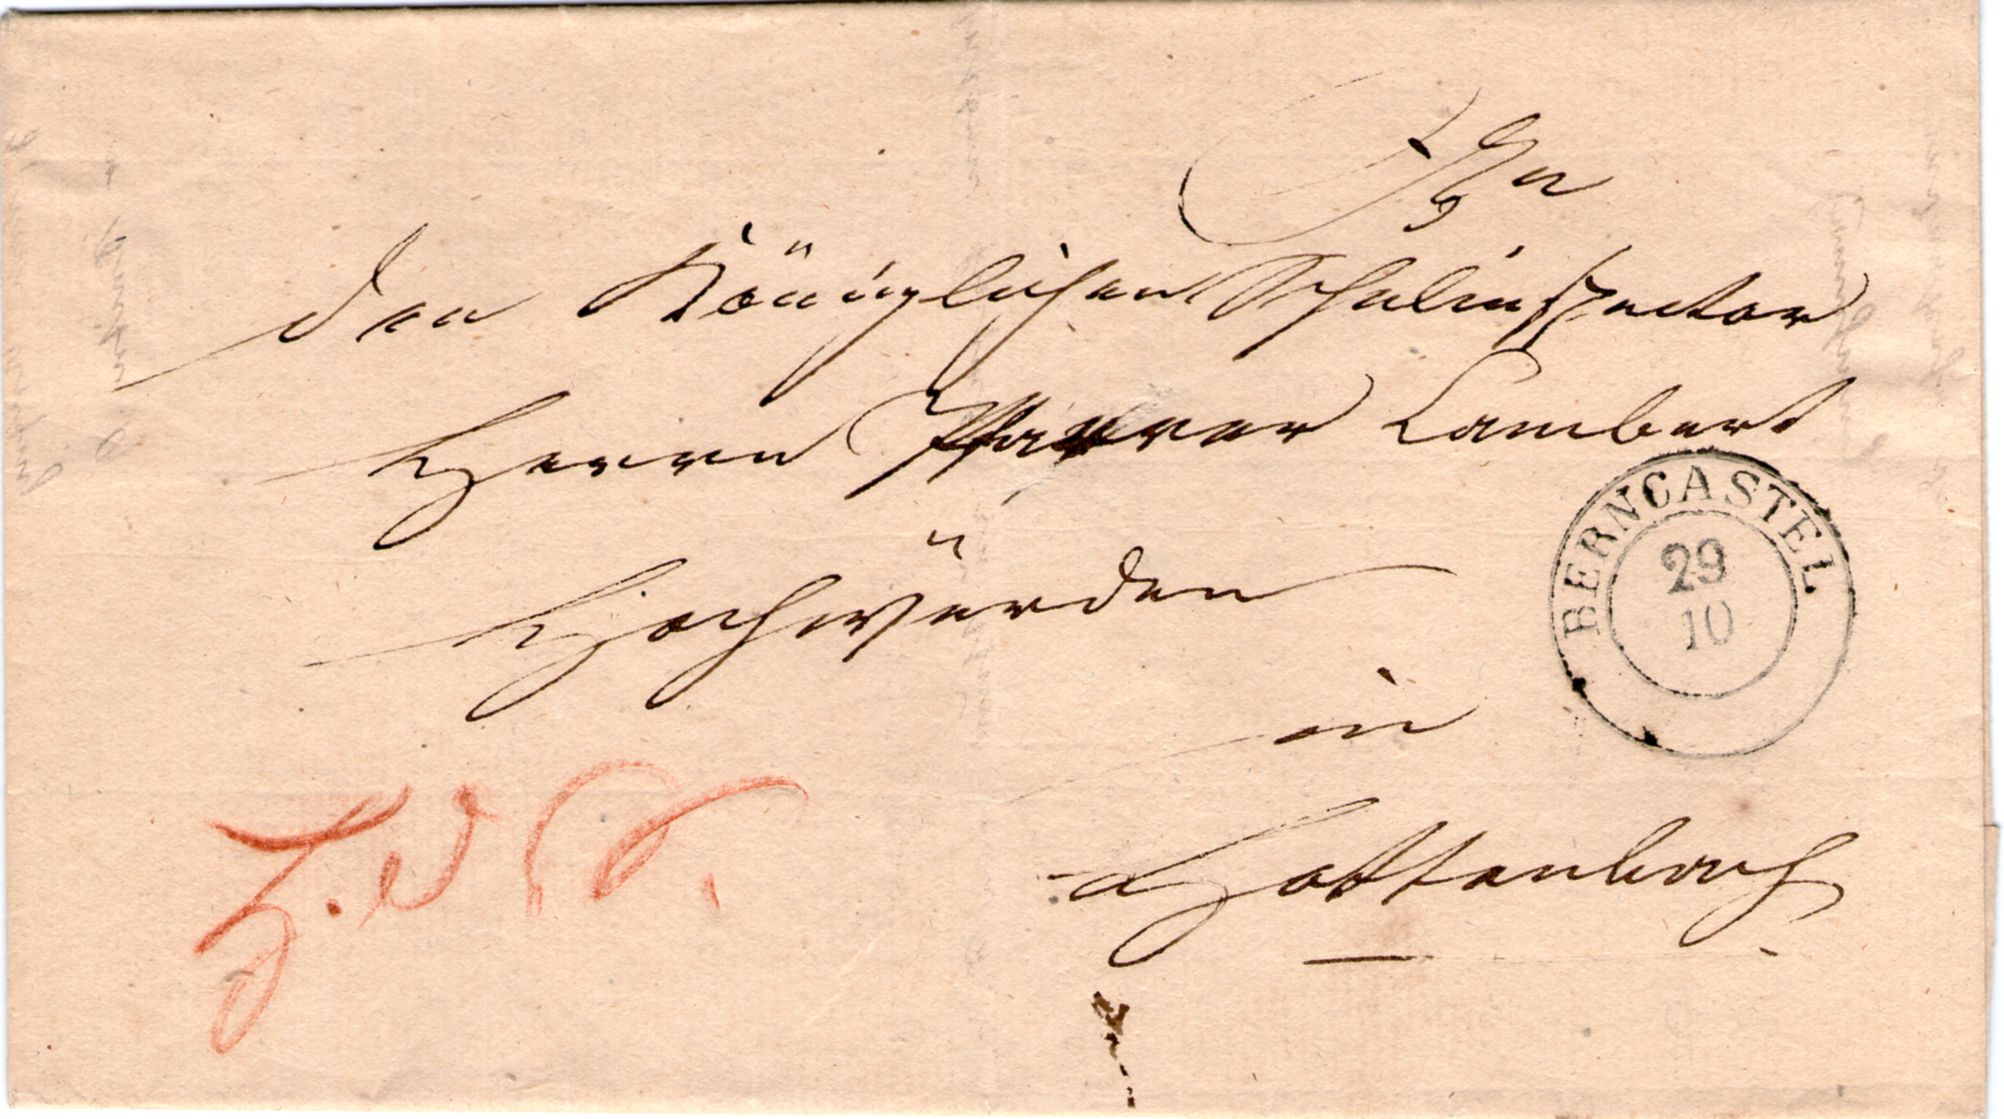 An
den Königlichen Schulinspector
Herrn Pfarrer Lambert
Hochwürden
in
Hottenbach
BERNCASTEL
29
10